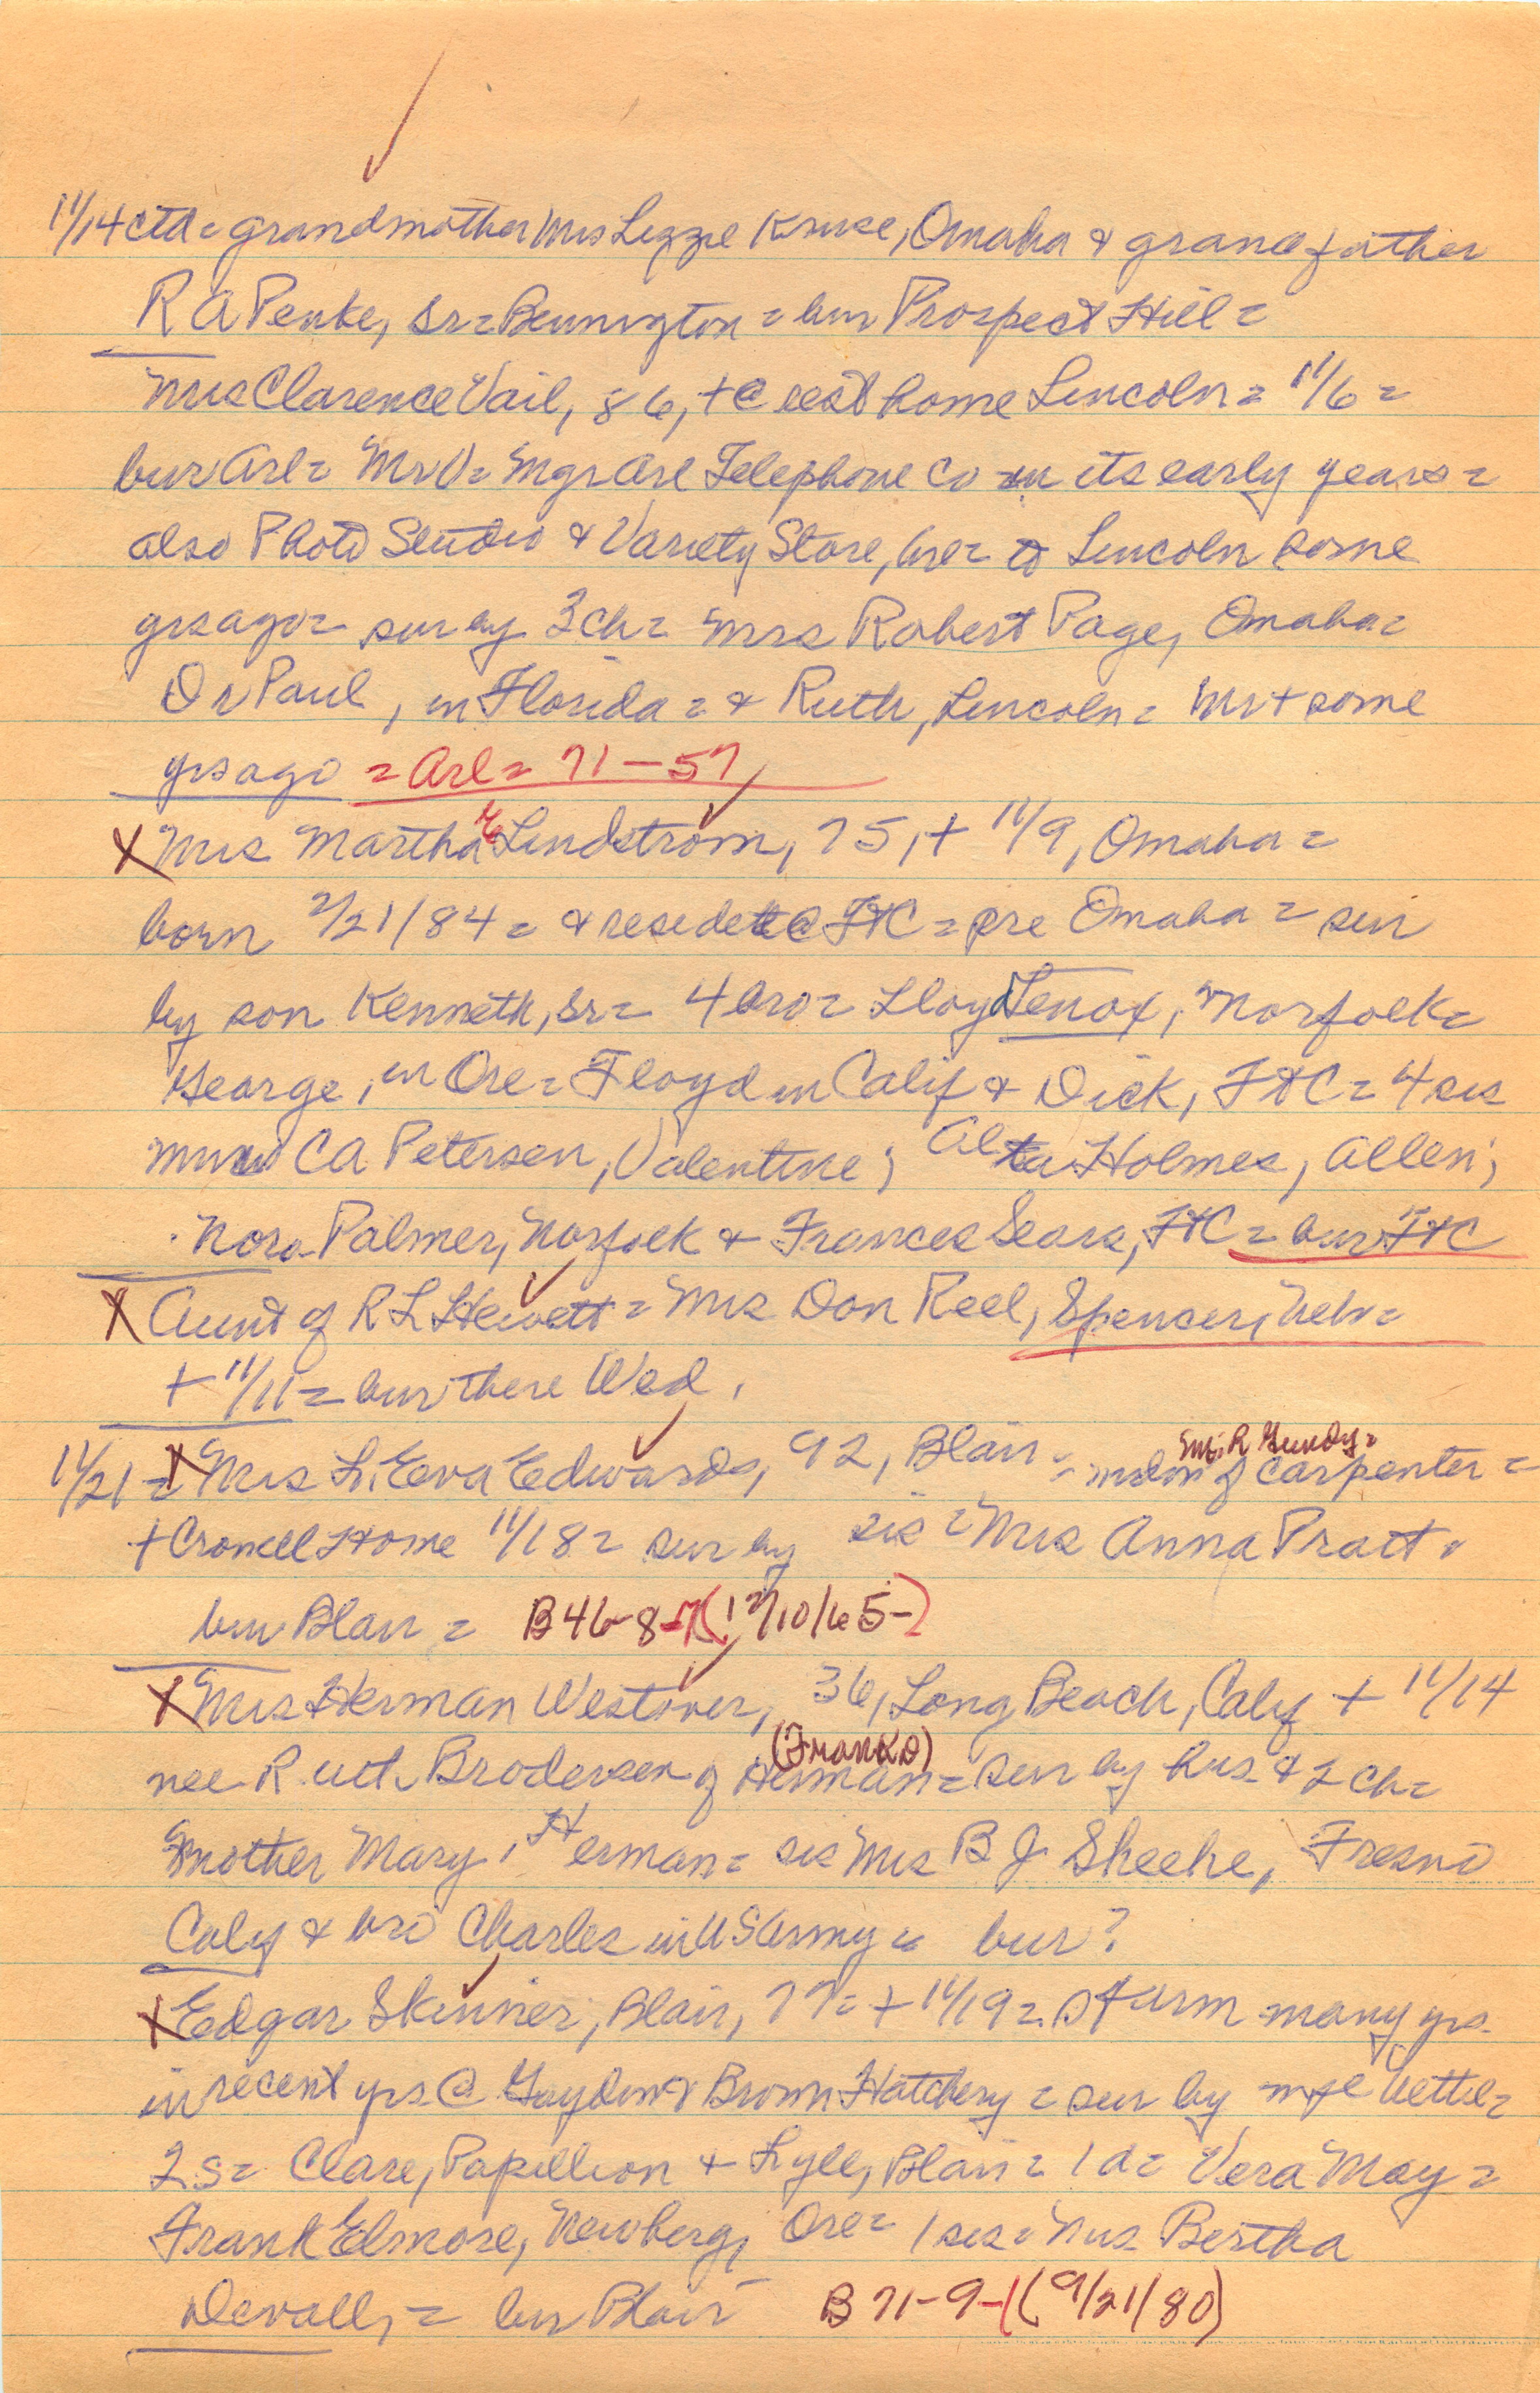 11/14 ctd = grandmother Mrs Lizzie Kruse, Omaha & grandfather
R A Penke, Sr = Bennington = bur Prospect Hill =
Mrs Clarence Vail, 86, + @ rest home Lincoln = 11/6 =
bur Arl = Mr V = Mgr Arl Telephone Co in its early years =
also Photo Studio & Variety Store, to Lincoln some
yrs ago = sur by 3 ch = Mrs Robert Page, Omaha =
Dr Paul, in Florida = & Ruth, Lincoln = Mr + some
yrs ago = Arl = 71-57
X Mrs Martha E Lindstrom, 75, + 11/9, Omaha =
born 2/21/84 = & resided @ FtC = pre Omaha = sur
by son Kenneth, Sr = 4 bro = Lloyd Lenox, Norfolk =
George, in Ore = Floyd in Calif & Dick, FtC = 4 sis
C A Petersen, Valentine; Alta Holmes, Allen;
Nora Palmer, Norfolk & Frances Sears, FtC = bur FtC
X Aunt of R L Hewett = Mrs Don Reel, Spencer, Neb =
+ 11/11 = bur there Wed.
11/21 = X Mrs L. Eva Edwards, 92, Blair = of Carpenter =
Mr. R Gundy =
+ Crowell Home 11/18 = sur by sis = Mrs Anna Pratt.
bur Blair = B46-8-7 (12/10/65-)
X Mrs Herman Westover, 36, Long Beach, Calif + 11/14
(Frank D)
nee Ruth Brodersen of Herman = sur by hus & 2 ch =
mother Mary, Herman = sis Mrs B J. Sheehe, Fresno
Calif & bro Charles in US Army = bur?
X Edgar Skinner, Blair, 77 = + 11/19 = farm many yrs.
in recent yrs @ Gaydou & Brown Hatchery = sur by wife Nettie =
2 s = Clare, Papillion & Lyle, Blair = 1 d = Vera May =
Frank Elmore, Newberg, Ore = 1 sis = Mrs Bertha
Devall, = bur Blair B 71-9-1 (9/21/80)